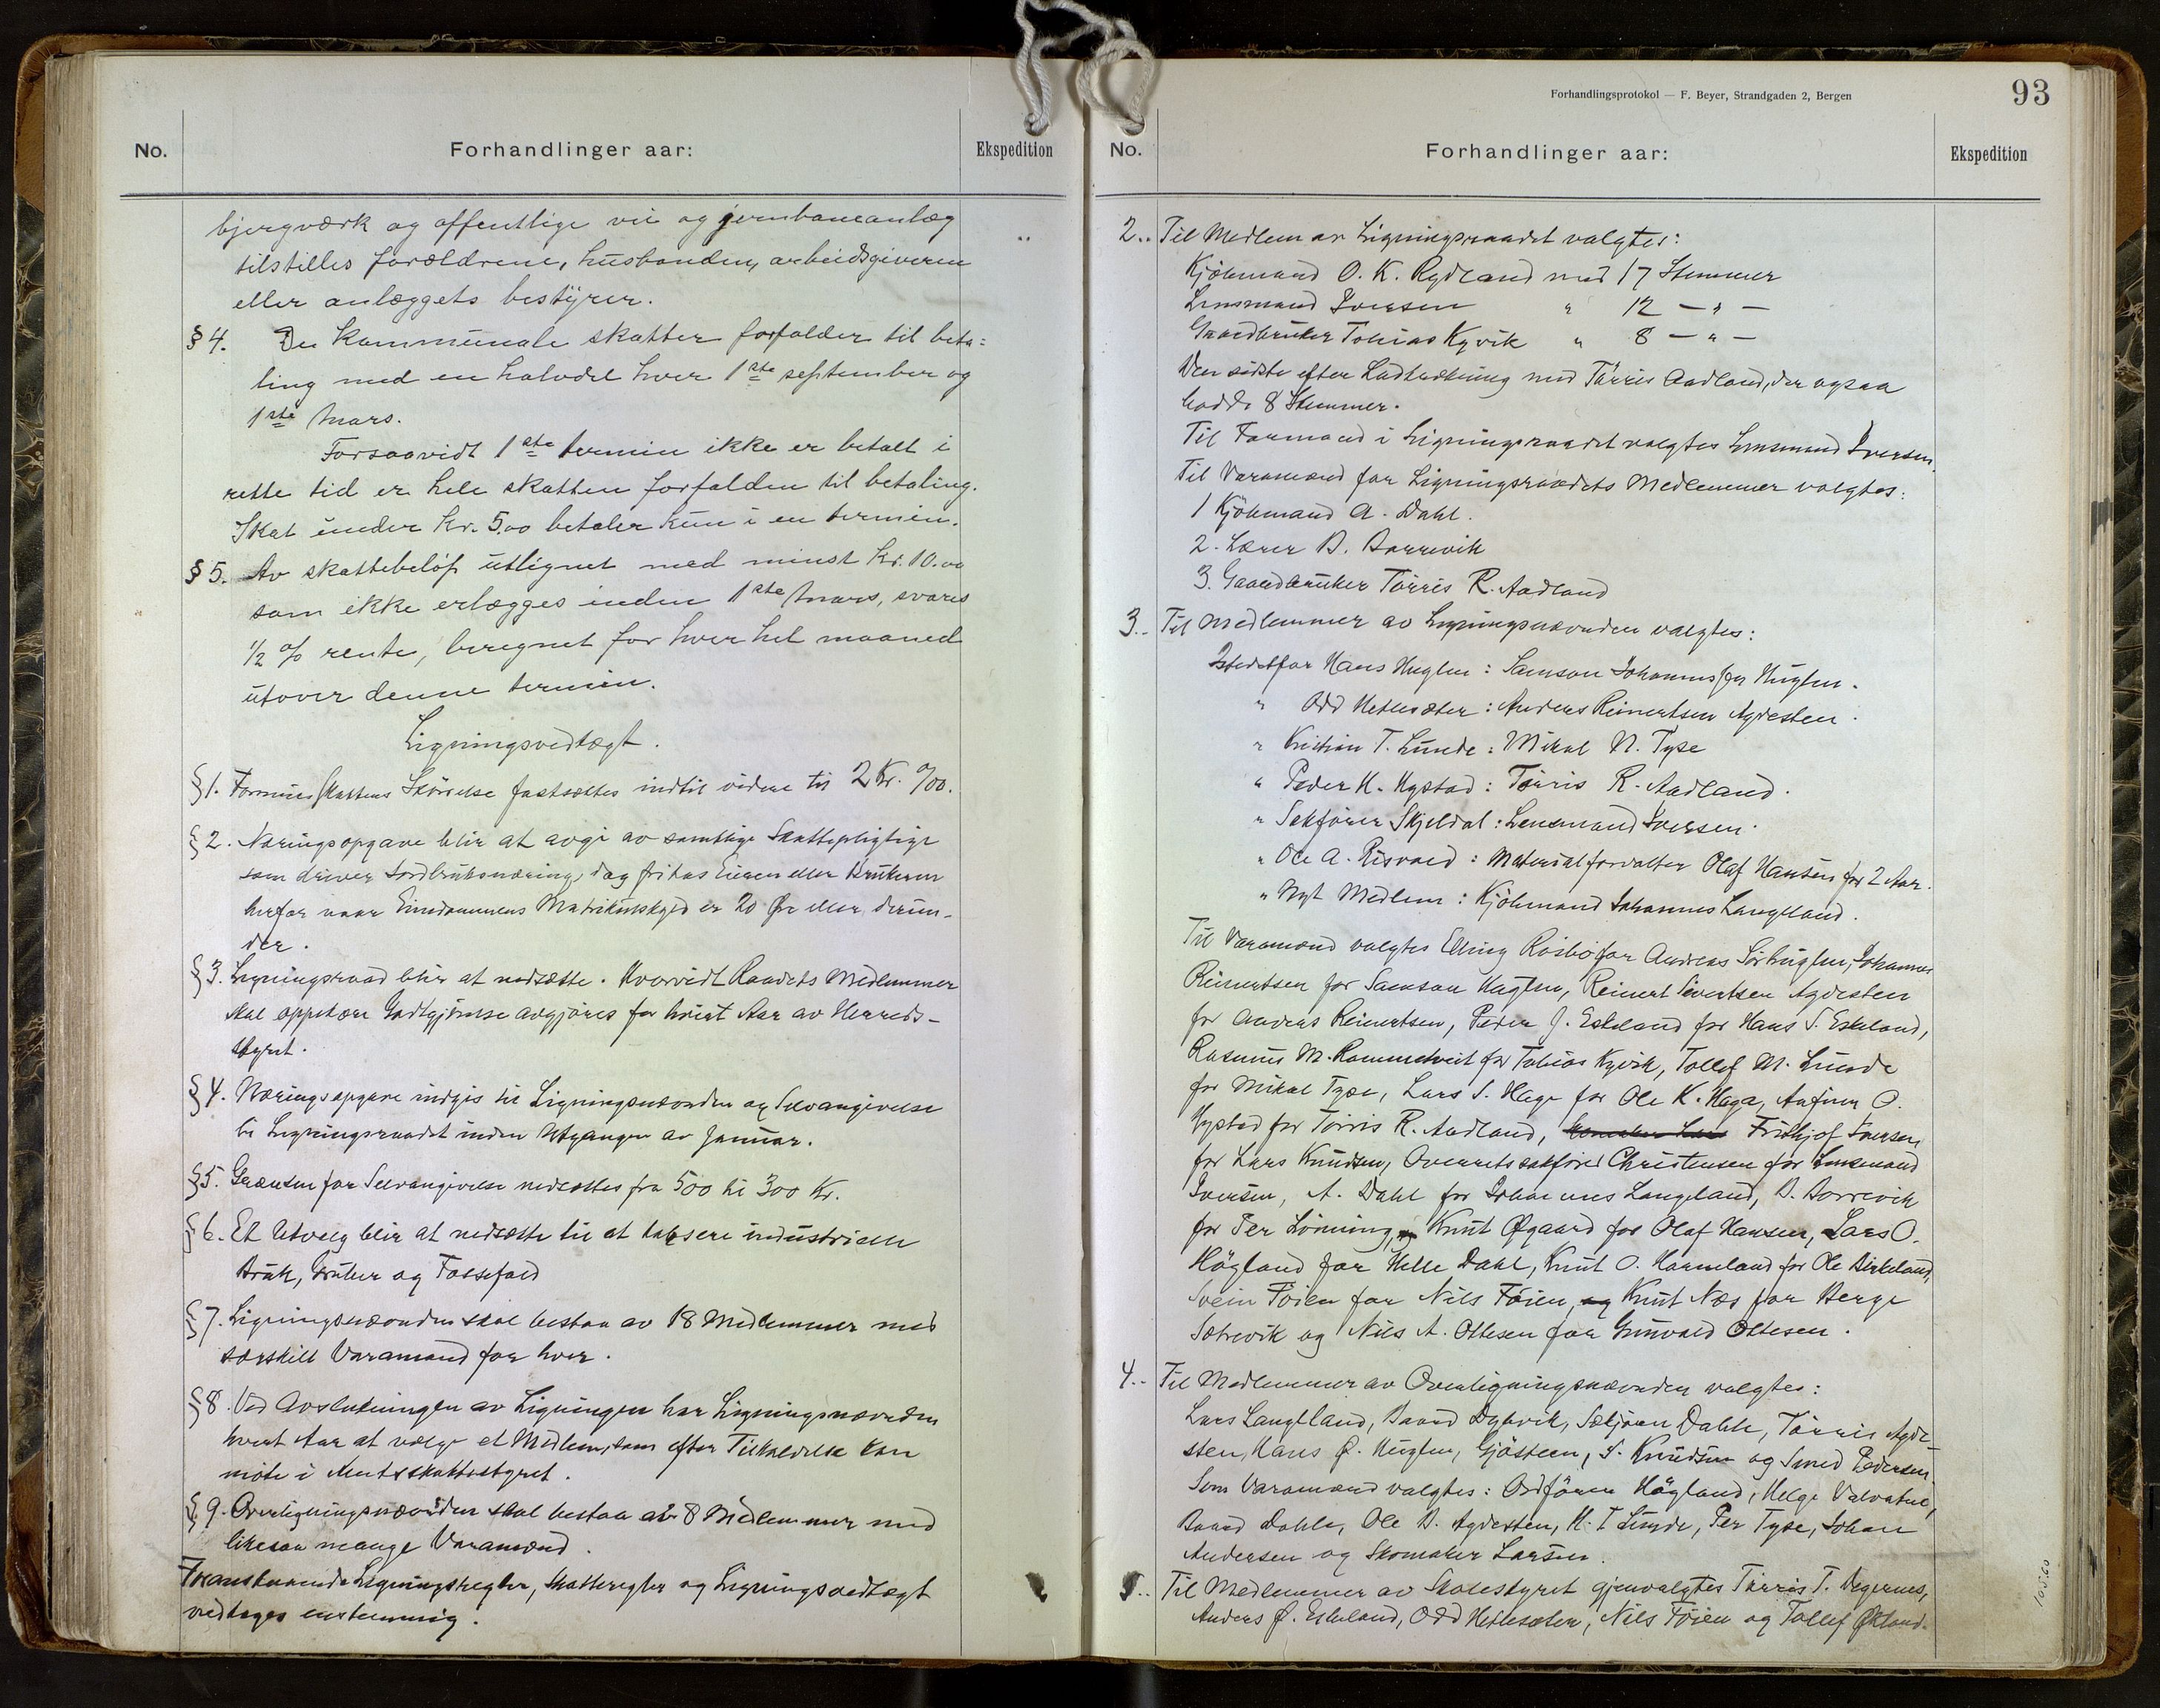 No.
Forhandlinger aar:
Ekspedition
bjergværk og offentlige vei og jernbaneanlæg
tilstilles forældrene, husbonden, arbeidsgiveren
eller anlæggets bestyrer.
§ 4. De kommunale skatter forfalder til beta=
ling med en halvdel hver 1ste september og
1ste mars.
Forsaavidt 1ste termin ikke er betalt i
rette tid er hele skatten forfalden til betaling.
Skat under kr. 5.00 betales kun i en termin.
§ 5. Av skattebeløp utlignet med minst kr. 10.00
som ikke erlægges inden 1ste mars, svares
1/2 % rente, beregnet for hver hel maaned
utover denne termin.
Ligningsvedtægt.
§ 1. Formuesskattens Størrelse fastsættes indtil videre til 2 Kr. 0/00.
§ 2. Næringsopgave blir at avgi av samtlige Skattepligtige
som driver Jordbruksnæring, dog fritas Eieren eller Brukeren
herfor naar Eiendommens Matrikulskyld er 20 Øre eller derun-
der.
§ 3. Ligningsraad blir at nedsætte. Hvorvidt Raadets Medlemmer
skal oppebære Godtgjørelse avgjøres for hvert Aar av Herreds-
styret.
§ 4. Næringsopgave indgis til Ligningsnævnden og Selvangivelse
til Ligningsraadet inden Utgangen av Januar.
§ 5. Grænsen for Selvangivelse nedsættes fra 500 til 300 Kr.
§ 6. Et Utvalg blir at nedsætte til at taksere industrielle
Bruk, Gruber og Fossefald
§ 7. Ligningsnævnden skal bestaa av 18 Medlemmer med
særskilt Varamand for hver.
§ 8. Ved Avslutningen av Ligningen har Ligningsnævnden
hvert Aar at vælge et Medlem, som efter Tilkaldelse kan
møte i Amtsskattestyret.
§ 9. Overligningsnævnden skal bestaa av 8 Medlemmer med
likesaa mange Varamænd.
Foranstaaende Ligningsregler, Skatteregler og Ligningsvedtægt
vedtages enstemmig.
Forhandlingsprotokol — F. Beyer, Strandgaden 2, Bergen
93
No.
Forhandlinger aar:
Ekspedition
2.. Til Medlem av Ligningsraadet valgtes:
Kjøbmand O. K. Rydland med 17 Stemmer
Lensmand Iversen " 12 — " —
Gaardbruker Tobias Kyvik " 8 — " —
Den sidste efter Lodtrækning med Tørris Aadland, der ogsaa
hadde 8 Stemmer.
Til Formand i Ligningsraadet valgtes Lensmand Iversen.
Til Varamænd for Ligningsraadets Medlemmer valgtes:
1 Kjøbmand A. Dahl.
2. Lærer B. Borrevik
3. Gaardbruker Tørris R. Aadland
3.. Til medlemmer av Ligningsnævnden valgtes:
Istedetfor Hans Huglen : Samson Johannessen Huglen.
" Odd Hetlesæter : Anders Reinertsen Agdesten.
" Kristian T. Lunde : Mikal N. Tyse
" Peder H. Hystad : Tørris R. Aadland.
" Sakfører Skjeldal : Lensmand Iversen.
" Ole A. Risvold : Materialforvalter Olaf Hansen for 2 Aar.
" Nyt Medlem : Kjøbmand Johannes Langeland.
Til Varamænd valgtes Elling Røsbø for Andreas Sørhuglen, Johannes
Reinertsen for Samson Huglen, Reinert Sivertsen Agdesten
for Anders Reinertsen, Peder J. Eskeland for Hans S. Eskeland,
Rasmus M. Rommetveit for Tobias Kyvik, Tollef M. Lunde
for Mikal Tyse, Lars S. Hage for Ole K. Haga, Anfinn O.
Hystad for Tørris R. Aadland, Fridtjof Iversen
for Lars Knudsen, Overretssakfører Christensen for Lensmand
Iversen, A. Dahl for Johannes Langeland, B. Borrevik
for Per Lønning, Knut Øgaard for Olaf Hansen, Lars O.
Høgland for Helle Dahl, Knut O. Hammeland for Ole Birkeland,
Svein Føien for Nils Føien, og Knut Næs for Berge
Sætrevik og Nils A. Ottesen for Grunvald Ottesen.
4.. Til Medlemmer av Overligningsnævnden valgtes:
Lars Langeland, Baard Dybvik, Dahle, Tørris Agde-
sten, Hans Ø. Huglen, Gjøsteen, S. Knudsen og Smed Pedersen.
Som Varamænd valgtes: Ordfører Høgland, Helge Valvatne,
Baard Dahle, Ole B. Agdesten, H. T. Lunde, Per Tyse, Johan
Andersen og Skomaker Larsen.
5.. Til Medlemmer av Skolestyret gjenvalgtes Tørris T. Vegernes,
Anders Ø. Eskeland, Odd Hetlesæter, Nils Føien og Tollef Økland.